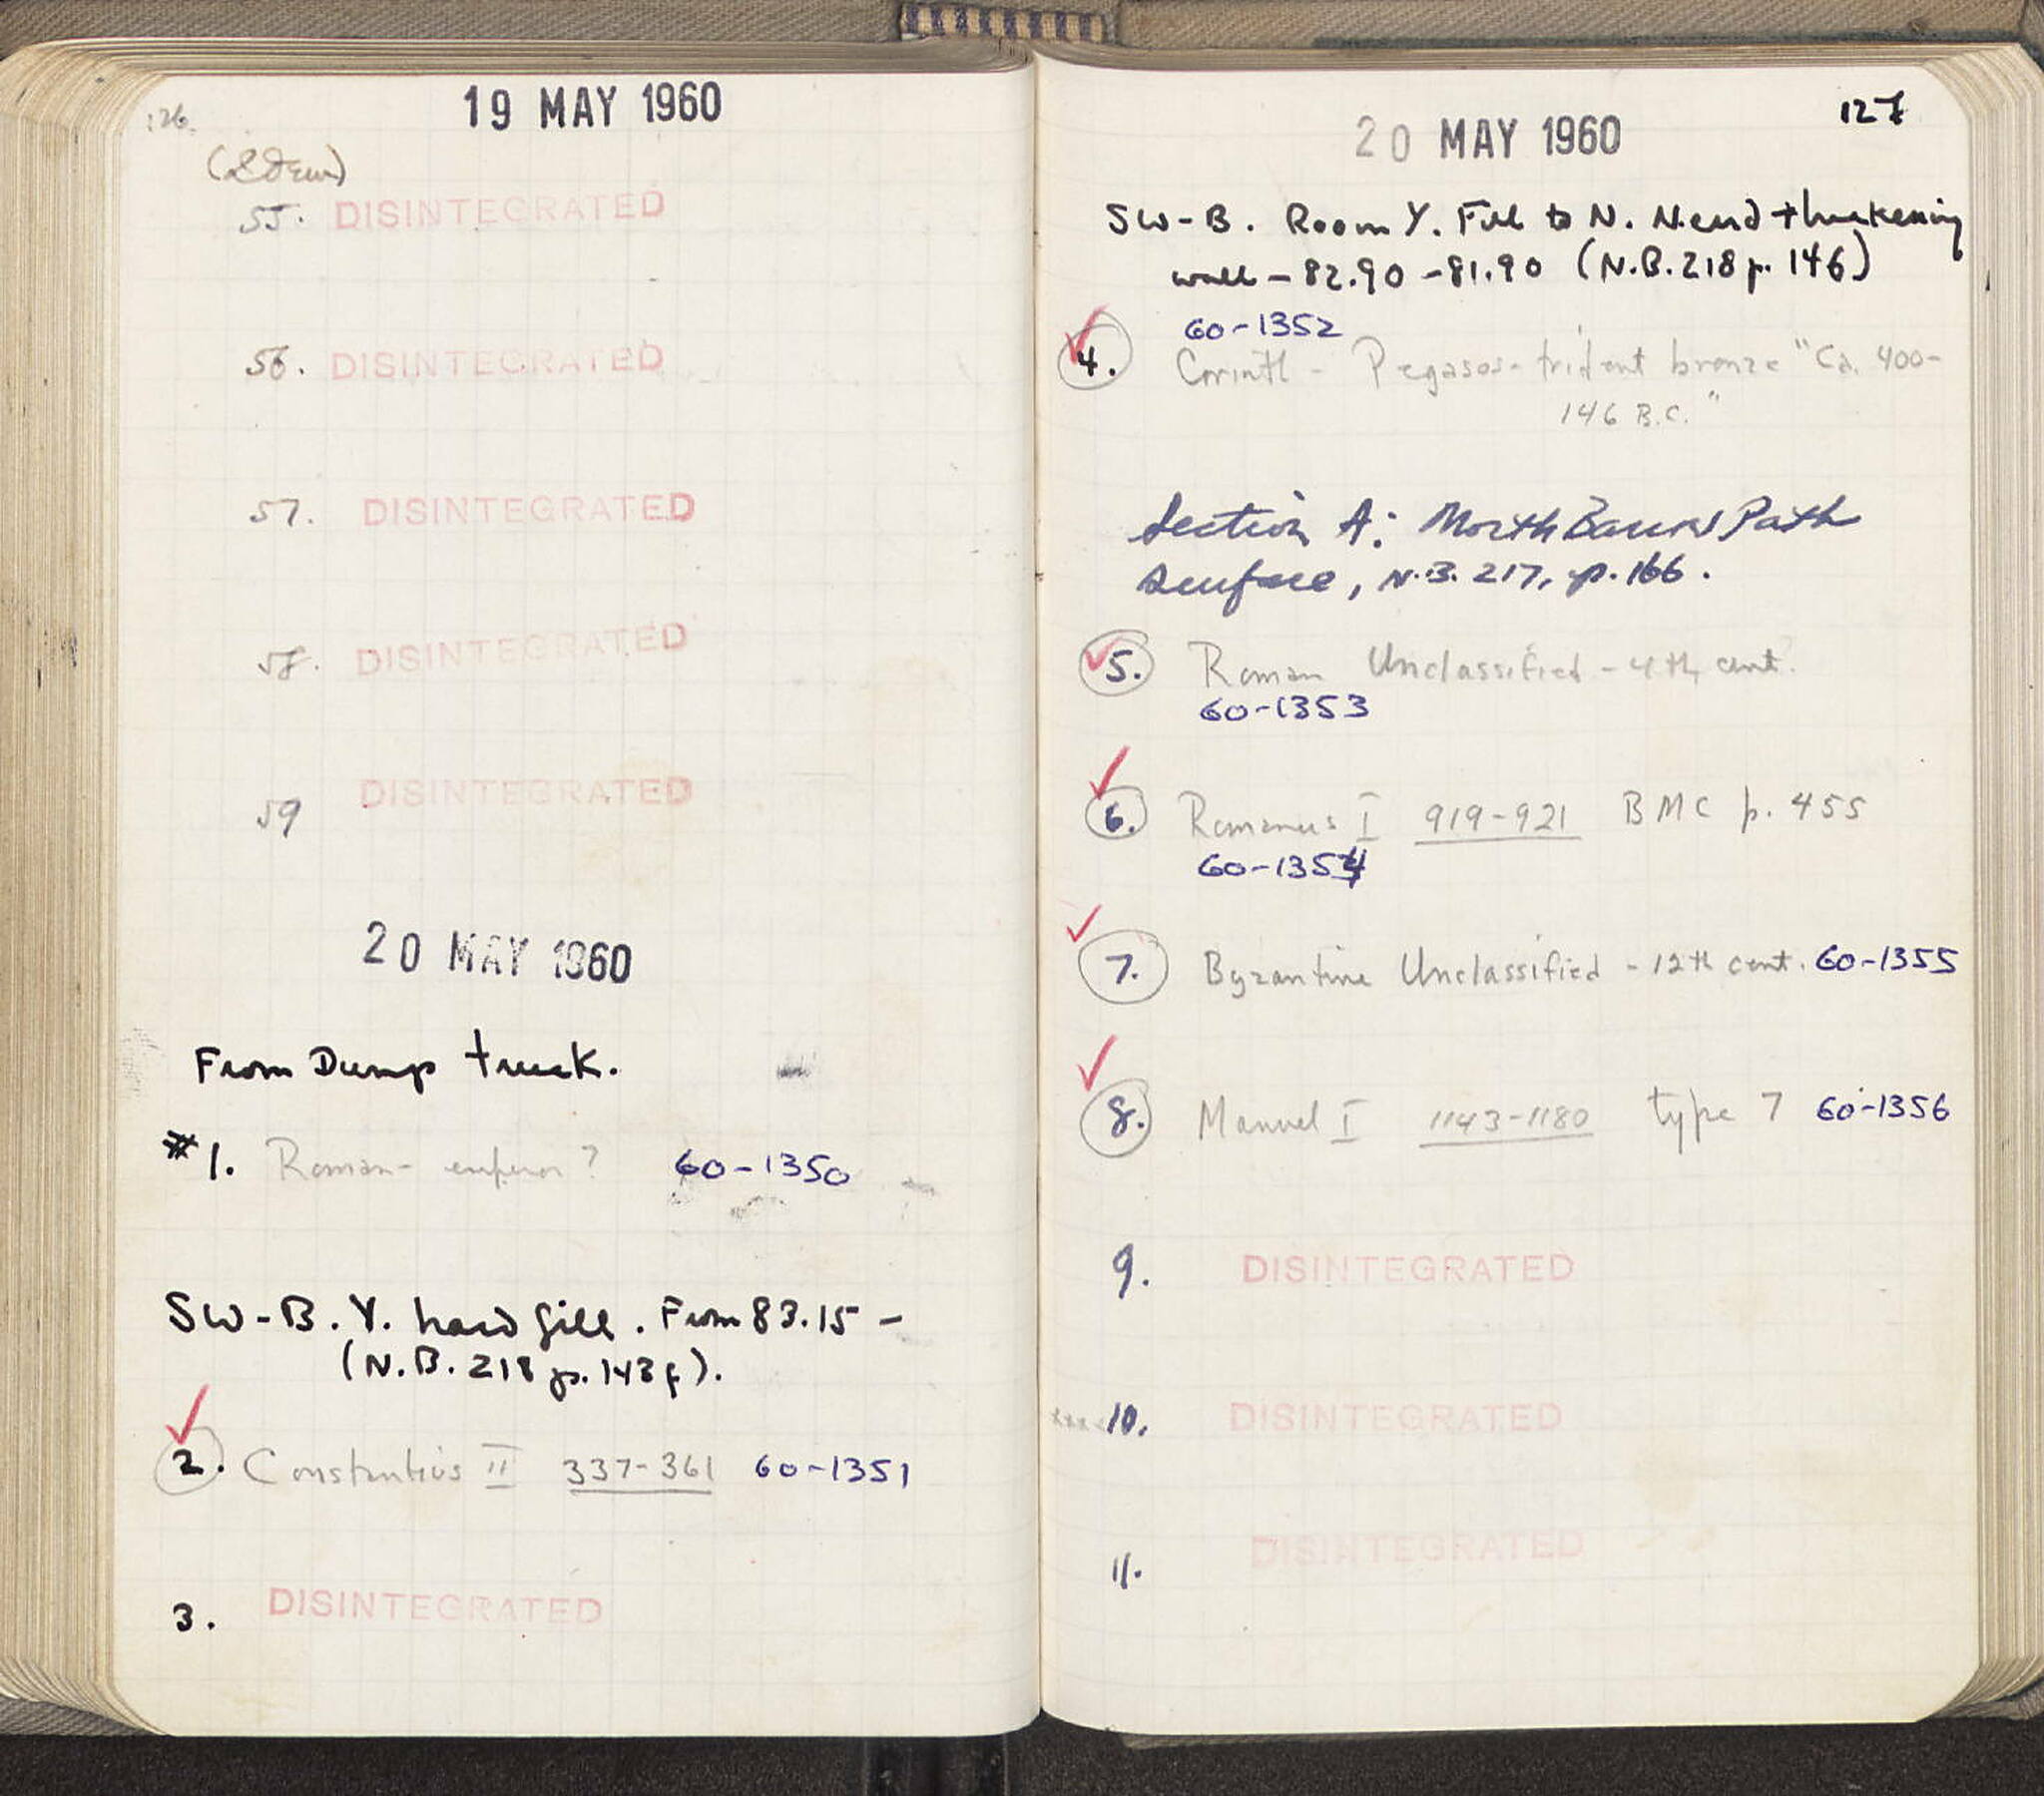 126.
19 MAY 1960
(Idem)
55. DISINTEGRATED
56. DISINTEGRATED
57. DISINTEGRATED
58. DISINTEGRATED
59 DISINTEGRATED
20 MAY 1960
From Dump truck.
#1. Roman - emperor? 60-1350
SW-B. Y. hard fill. From 83.15 -
(N.B. 218 p. 143 f).
2. Constantius II 337-361 60-1351
3. DISINTEGRATED
127
20 MAY 1960
SW-B. Room Y. Fill to N. N. end thickening
wall - 82.90 - 81.90 (N.B. 218 p. 146)
60-1352
4. Corinth - Pegasos - trident bronze "Ca. 400-
146 B.C."
Section A: North Path
Surface, N.B. 217, p. 166.
5. Roman Unclassified - 4th cent.
60-1353
6. Romanus I 919-921 BMC p. 455
60-1354
7. Byzantine Unclassified - 12th cent. 60-1355
8. Manuel I 1143-1180 type 7 60-1356
9. DISINTEGRATED
10. DISINTEGRATED
11. DISINTEGRATED